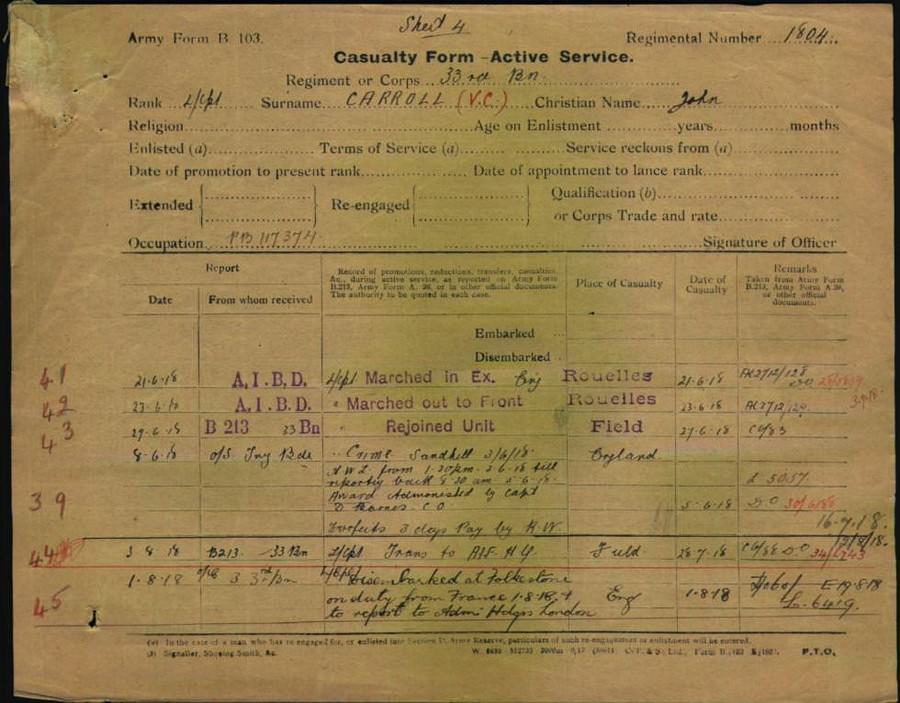 Shed 4
Army Form B 103.
Regimental Number 1804.
Casualty Form - Active Service.
Regiment or Corps 33rd Bn
Rank L/Cpl Surname CARROLL (V.C.) Christian Name John
Religion Age on Enlistment years months
Enlisted (a) Terms of Service (a) Service reckons from (a)
Date of promotion to present rank Date of appointment to lance rank
Extended Re-engaged Qualification (b)
or Corps Trade and rate
Occupation PB 117374 Signature of Officer
Report
Date From whom received
Record of promotions, reductions, transfers, casualties, &c., during active service, as reported on Army Form B.213, Army Form A. 36, or in other official documents. The authority to be quoted in each case.
Place of Casualty
Date of Casualty
Remarks
Taken from Army Form B.213, Army Form A.36, or other official documents.
Embarked
Disembarked
41 21-6-18 A.I.B.D. L/Cpl Marched in Ex. Eng Rouelles 21-6-18
42 23-6-18 A.I.B.D. " Marched out to Front Rouelles 23-6-18
43 29-6-18 B 213 33 Bn " Rejoined Unit Field 27-6-18 CG/83
39 8-6-18 o/S. Trg Bde Crime Sandhill 3/6/18 England
AWL from 1-30pm 2-6-18 till
reporting back 8.30 am 5-6-18. L 5057
Award Admonished by Capt
D Barnes C.O. 5-6-18 DO
Forfeits 3 days Pay by R.W. 16-7-18.
44 3 8 18 B213 33 Bn L/Cpl Trans to AIF HQ Field 28-7-18
45 1-8-18 33rd Bn L/Cpl Disembarked at Folkestone
on duty from France 1-8-18 & Eng 1-8-18 E 19-8-18
to report to Admin Hdqrs London L. 6419.
(a) In the case of a man who has re-engaged for, or enlisted into Section D. Army Reserve, particulars of such re-engagement or enlistment will be entered.
(b) Signaller, Shoeing Smith, &c.
P.T.O.